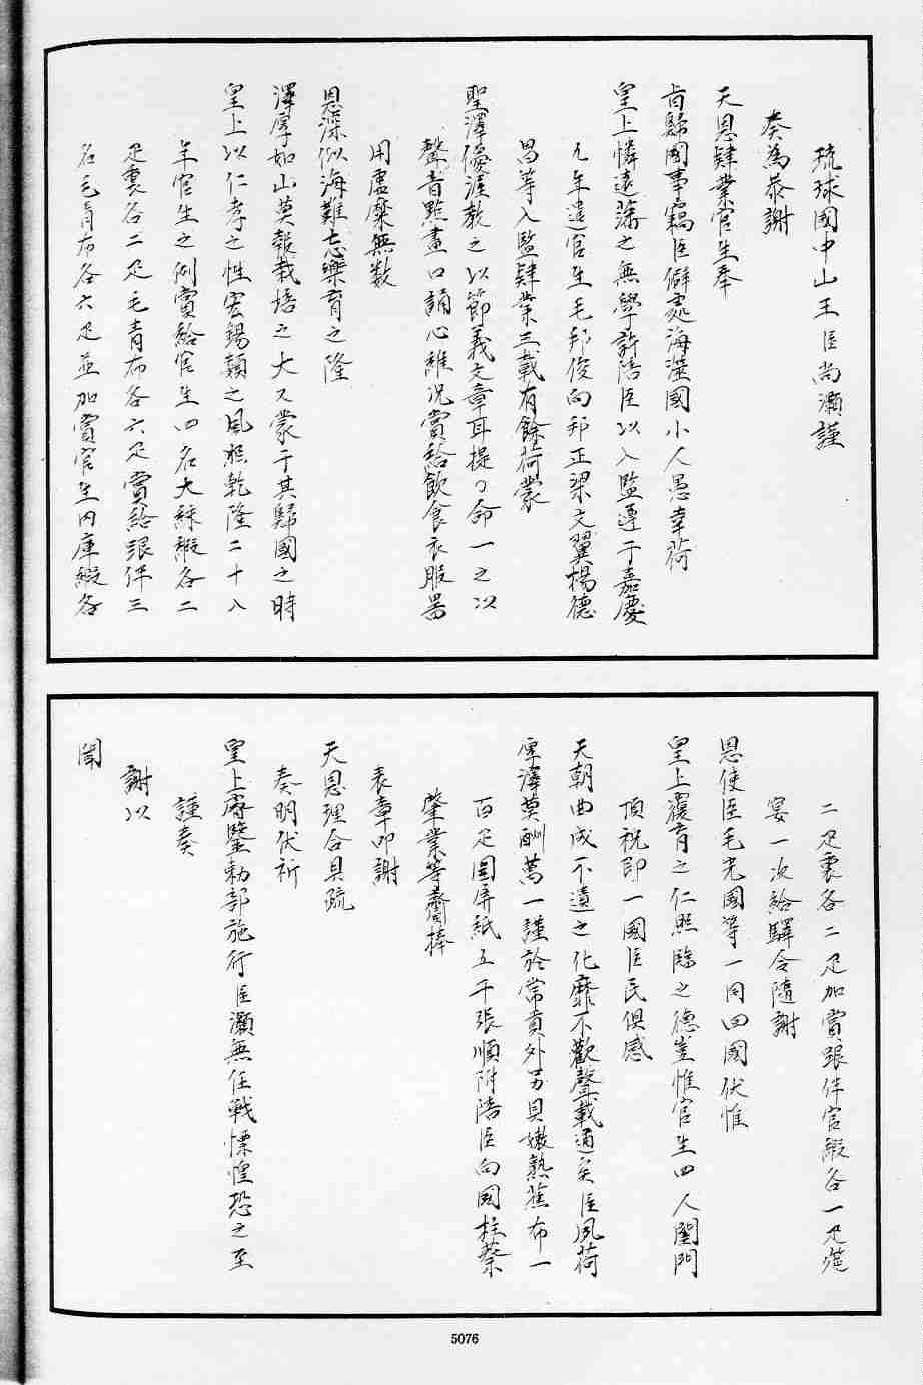 琉球國中山王臣尚灝謹
奏為恭謝
天恩肄業官生奉
旨歸國事竊臣僻處海澨國小人愚幸荷
皇上憐遠藩之無學許陪臣以入監遵于嘉慶
九年遣官生毛邦俊向邦正梁文翼楊德
昌等入監肄業三載有餘荷蒙
聖澤優渥教之以節義文章耳提面命一之以
聲音點畫口誦心維況賞給飲食衣服器
用虛糜無数
恩深似海難忘樂育之隆
澤厚如山莫報栽培之大又蒙于其歸國之時
皇上以仁孝之性宏錫類之風照乾隆二十八
年官生之例賞給官生四名大綵緞各二
疋裏各二疋毛青布各六疋賞給跟伴三
名毛青布各六疋並加賞官生內庫緞各
二疋裏各二疋加賞跟伴官緞各一疋筵
宴一次給驛令隨謝
恩使臣毛光國等一同回國伏惟
皇上覆育之仁照臨之德豈惟官生四人闔門
頂祝即一國臣民俱感
天朝曲成不遺之化靡不歡聲載道矣臣夙荷
厚澤莫酬萬一謹於常貢外另具嫩熟蕉布一
百疋圍屏紙五千張順附陪臣向國柱蔡
肇業等齎捧
表章叩謝
天恩理合具疏
奏明伏祈
皇上睿鑒勅部施行臣灝無任戰慄惶恐之至
謹奏
謝以
聞
5076